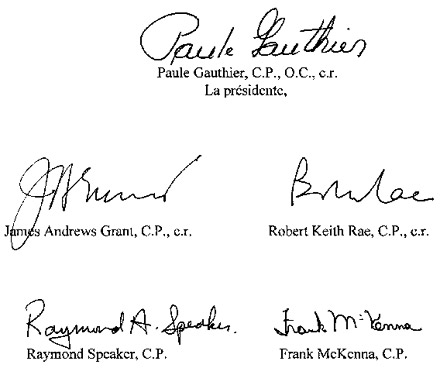 Paule Gauthier
Paule Gauthier, C.P., O.C., c.r.
La présidente,
James Andrews Grant, C.P., c.r.
Robert Keith Rae, C.P., c.r.
Raymond A. Speaker.
Frank McKenna
Raymond Speaker, C.P.
Frank McKenna, C.P.